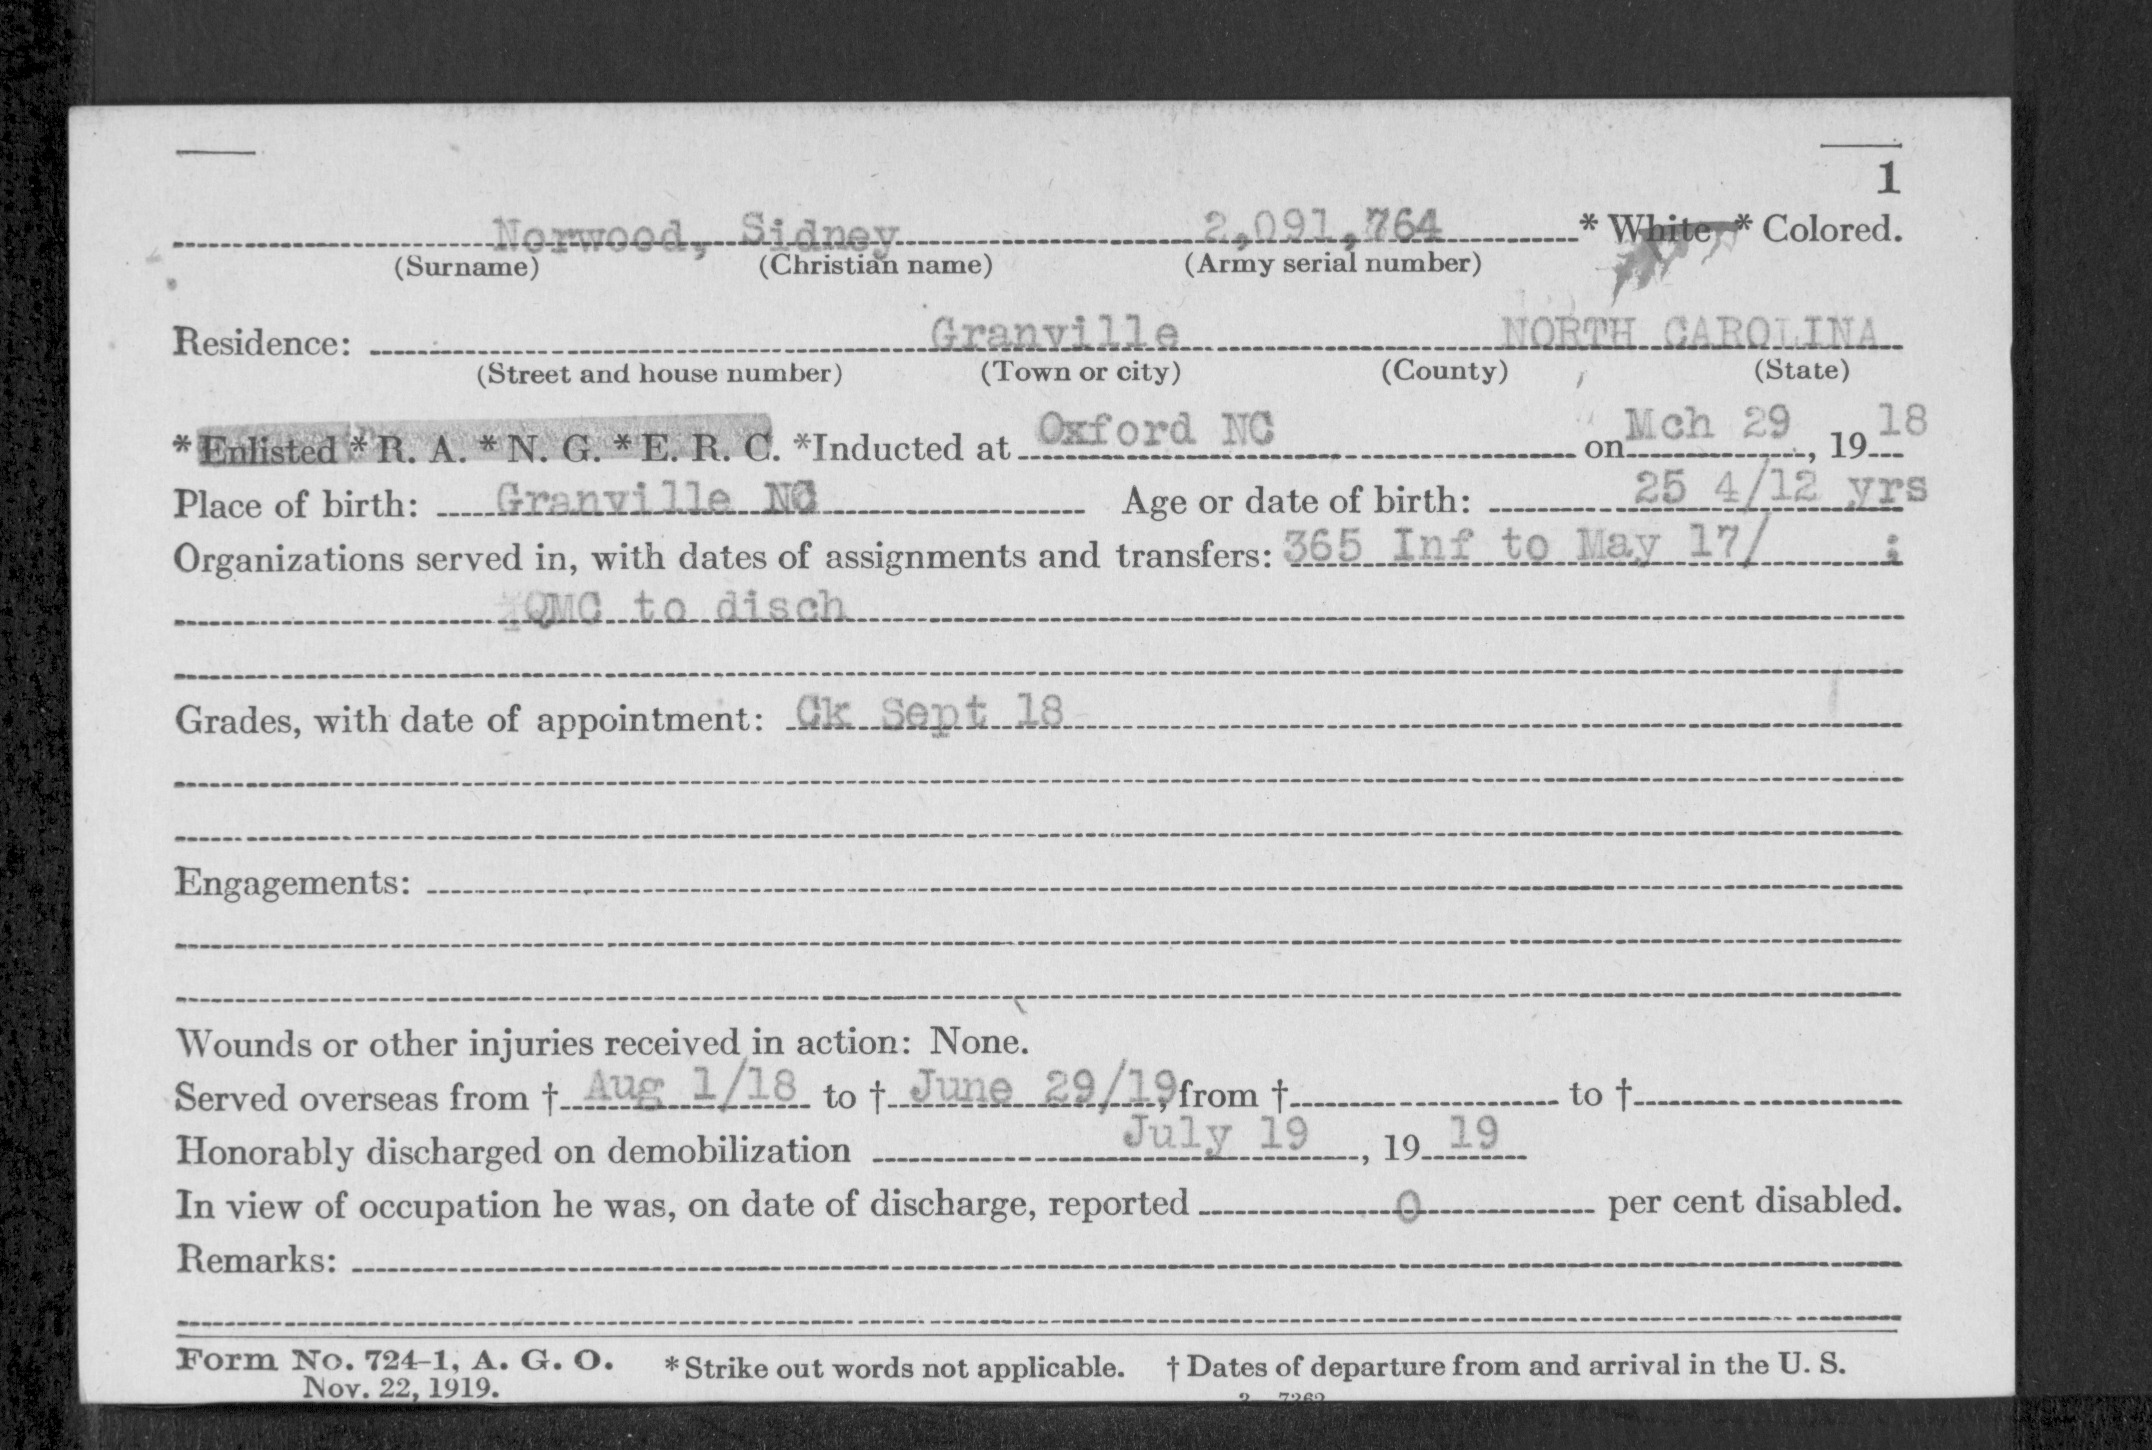 1
Norwood, Sidney 2,091,764 * White * Colored.
(Surname) (Christian name) (Army serial number)
Residence: Granville NORTH CAROLINA
(Street and house number) (Town or city) (County) (State)
* Enlisted * R. A. * N. G. * E. R. C. *Inducted at Oxford NC on Mch 29, 19 18
Place of birth: Granville NC Age or date of birth: 25 4/12 yrs
Organizations served in, with dates of assignments and transfers: 365 Inf to May 17/ ;
QMC to disch
Grades, with date of appointment: Ck Sept 18
Engagements:
Wounds or other injuries received in action: None.
Served overseas from † Aug 1/18 to † June 29/19, from † to †
Honorably discharged on demobilization July 19, 19 19
In view of occupation he was, on date of discharge, reported 0 per cent disabled.
Remarks:
Form No. 724-1, A. G. O. * Strike out words not applicable. † Dates of departure from and arrival in the U. S.
Nov. 22, 1919.